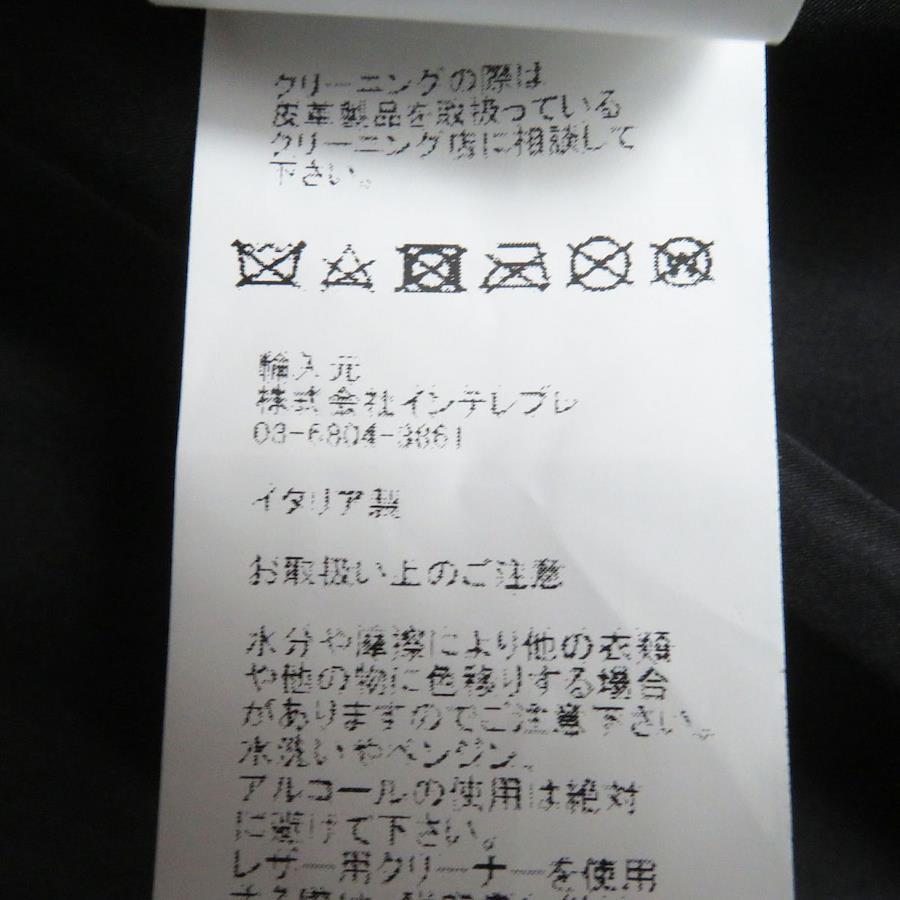 クリーニングの際は
皮革製品を取扱っている
クリーニング店に相談して
下さい。
輸入元
株式会社インテレプレ
03-6804-3861
イタリア製
お取扱い上のご注意
水分や摩擦により他の衣類
や他の物に色移りする場合
がありますのでご注意下さい。
水洗いやベンジン、
アルコールの使用は絶対
に避けて下さい。
レザー用クリーナーを使用